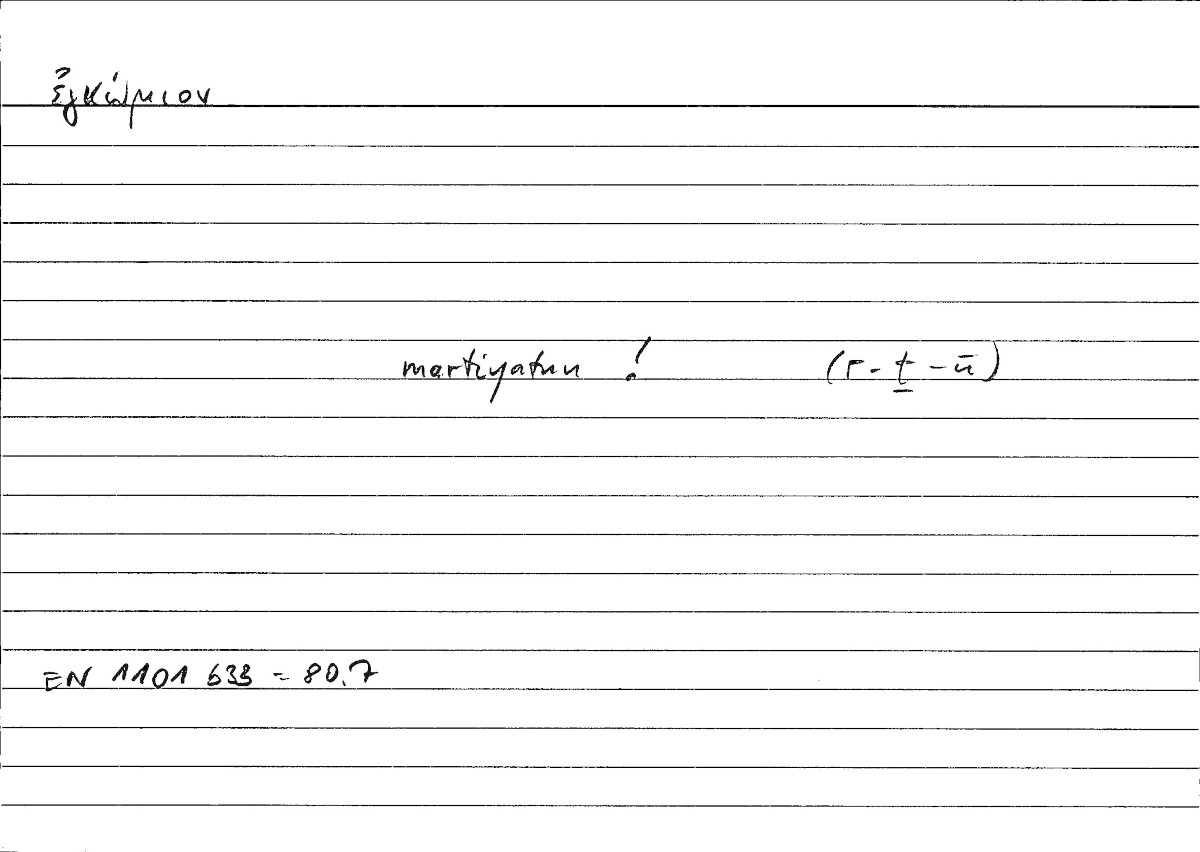 ἐγκώμιον
martiyatun ! (r-ṯ-ū)
EN 1101 b33 = 80.7